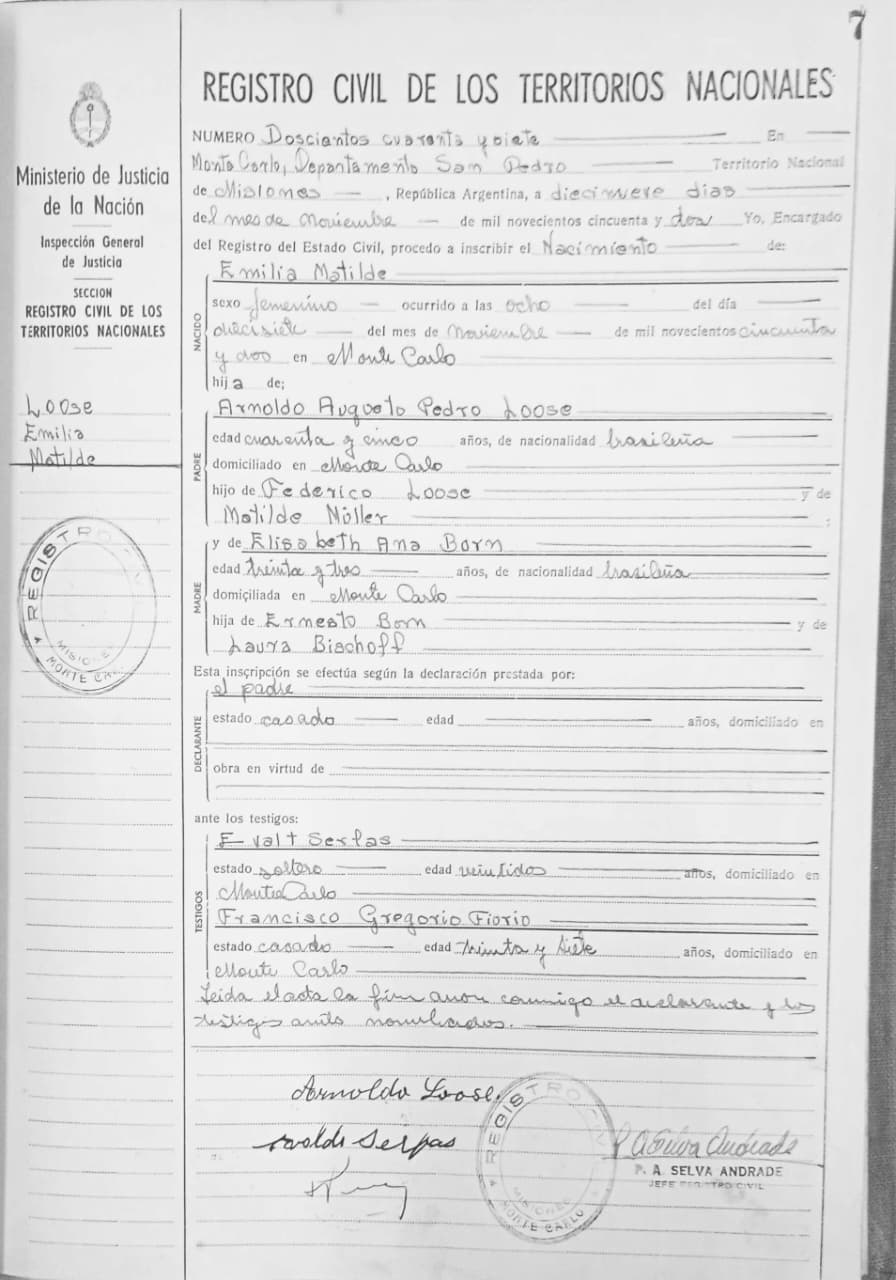 7
REGISTRO CIVIL DE LOS TERRITORIOS NACIONALES
Ministerio de Justicia
de la Nación
Inspección General
de Justicia
SECCION
REGISTRO CIVIL DE LOS
TERRITORIOS NACIONALES
Loose
Emilia
Matilde
REGISTRO CIVIL
MISIONES
MONTE CARLO
NUMERO Doscientos cuarenta y siete En
Monte Carlo, Departamento San Pedro Territorio Nacional
de Misiones, República Argentina, a diecinueve dias
del mes de noviembre de mil novecientos cincuenta y dos Yo, Encargado
del Registro del Estado Civil, procedo a inscribir el Nacimiento de:
NACIDO
Emilia Matilde
sexo femenino ocurrido a las ocho del día
diecisiete del mes de noviembre de mil novecientos cincuenta
y dos en Monte Carlo
hija de;
PADRE
Arnoldo Augusto Pedro Loose
edad cuarenta y cinco años, de nacionalidad brasileña
domiciliado en Monte Carlo
hijo de Federico Loose y de
Matilde Müller ;
MADRE
y de Elisabeth Ana Born
edad treinta y tres años, de nacionalidad brasileña
domiciliada en Monte Carlo
hija de Ernesto Born y de
Laura Bischoff
Esta inscripción se efectúa según la declaración prestada por:
DECLARANTE
el padre
estado casado edad años, domiciliado en
obra en virtud de
ante los testigos:
TESTIGOS
Evalt Serpas
estado soltero edad veintidos años, domiciliado en
Monte Carlo
Francisco Gregorio Fiorio
estado casado edad treinta y siete años, domiciliado en
Monte Carlo
Leida el acta la firmaron conmigo el declarante y los
testigos antes nombrados.
Arnoldo Loose
Serpas
REGISTRO CIVIL
MISIONES
MONTE CARLO
P A Selva Andrade
P. A. SELVA ANDRADE
JEFE REGISTRO CIVIL